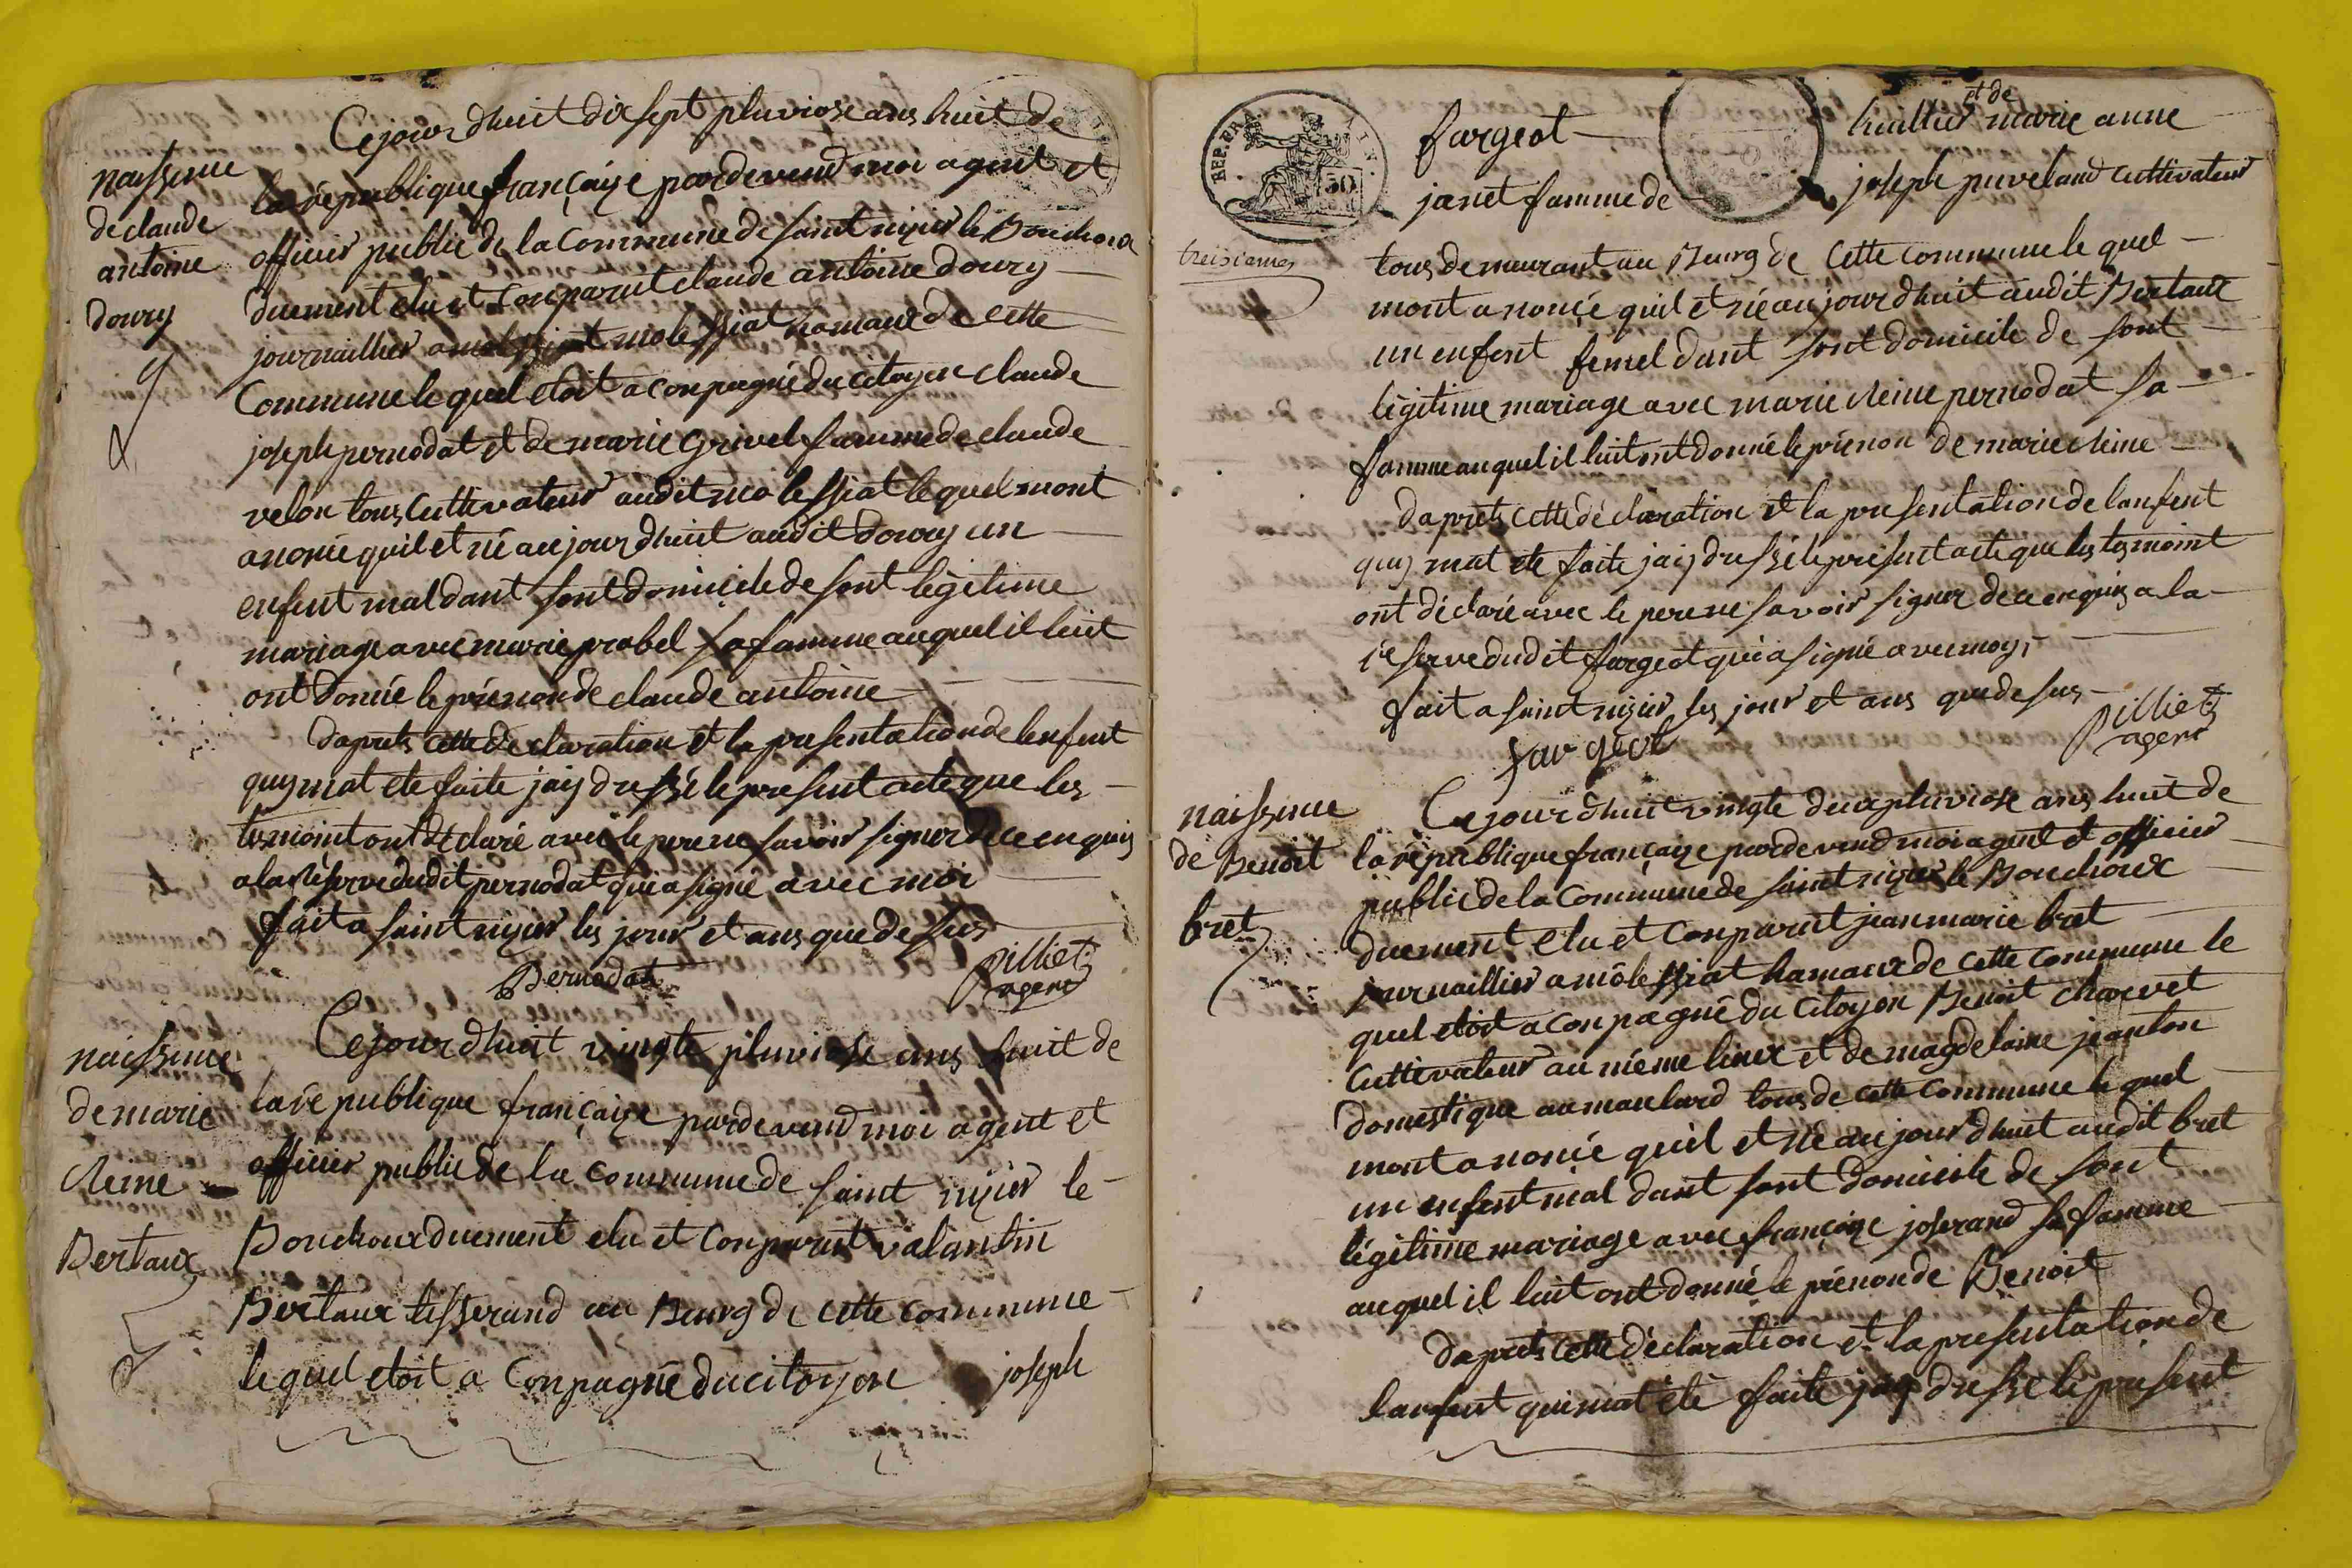 Cejour dhuit dix sept pluviose ans huit de
naissence
de claude
antoine
doury
la republique françaize pardevend moi agent et
officier public de la Commune de saint nizier le Bouchoux
duement elu et Conparut claude antoine doury
journaillier a molessiat hamaux de cette
Commune le quel etoit a conpagné du citoyen claude
joseph pernodat et de marie Grivel famme de claude
velon tous Cuttivateur audit molessiat le quel mont
anonié quil et né aujourdhuit audit doury un
enfent mal dant sont domicile de sont legitime
mariage avec marie probel sa famme auquel il luit
ont donnée le prénon de claude antoine
daprets cette declaration et la presentation de lenfent
quy mat ete faite jaiy dressé le present acte que les
tesmoint ont déclaré avec le pere ne savoir signer de ce enquis
a la réserve dudit pernodat qui a signé avec moi
fait a saint nizier les jour et ans que de sus
Pernodat
Pilliet
agent
naissence
de marie
cleine
Bertaux
Cejour dhuit vingte pluviose ans huit de
la republique françaize pardevend moi agent et
officier public de la Commune de saint nizier le
Bouchoux duement elu et Conparut valantin
Bertaux tisserand au Bourg de cette commune
le quel etoit a Conpagné du citoyen joseph
REP. FRA.
50
fargeot
et de
huillier marie anne
janet famme de
joseph puveland cuttivateur
treiziemes
tous demeurant au Bourg de Cette commune le quel
mont anonçé quil et né aujourdhuit audit Bertaux
un enfent femel dant sont domicile de sont
legitime mariage avec marie cleine pernodat sa
famme auquel il luit ont donné le prénon de marie cleine
daprets cette déclaration et la presentation de lanfent
quy mat ete faite jaiy dressé le present acte que les tesmoint
ont déclaré avec le pere ne savoir signer de ce enquis a la
réserve dudit fargeot qui a signé avec moy
fait a saint nizier les jour et ans que de sus
fargeot
Pilliet
agent
naissence
de Benoit
bret
Cejour dhuit vingte deux pluviose ans huit de
la republique françaize pardevend moi agent et officier
public de la Commune de saint nizier le Bouchoux
duement elu et Conparut jean marie bret
journaillier a molessiat hamaux de cette commune le
quel etoit a conpagné du citoyen Benoit charvet
Cuttivateur au même lieux et de magdelaine jeanton
domestique au maulard tous de cette commune le quel
mont anonié quil et né aujourdhuit audit bret
un enfent mal dant sont domicile de sont
légitime mariage avec françoize joserand sa famme
auquel il luit ont donné le prénon de Benoit
daprets cette déclaration et la presentation de
lanfent qui mat été faite jaiy dressé le présent